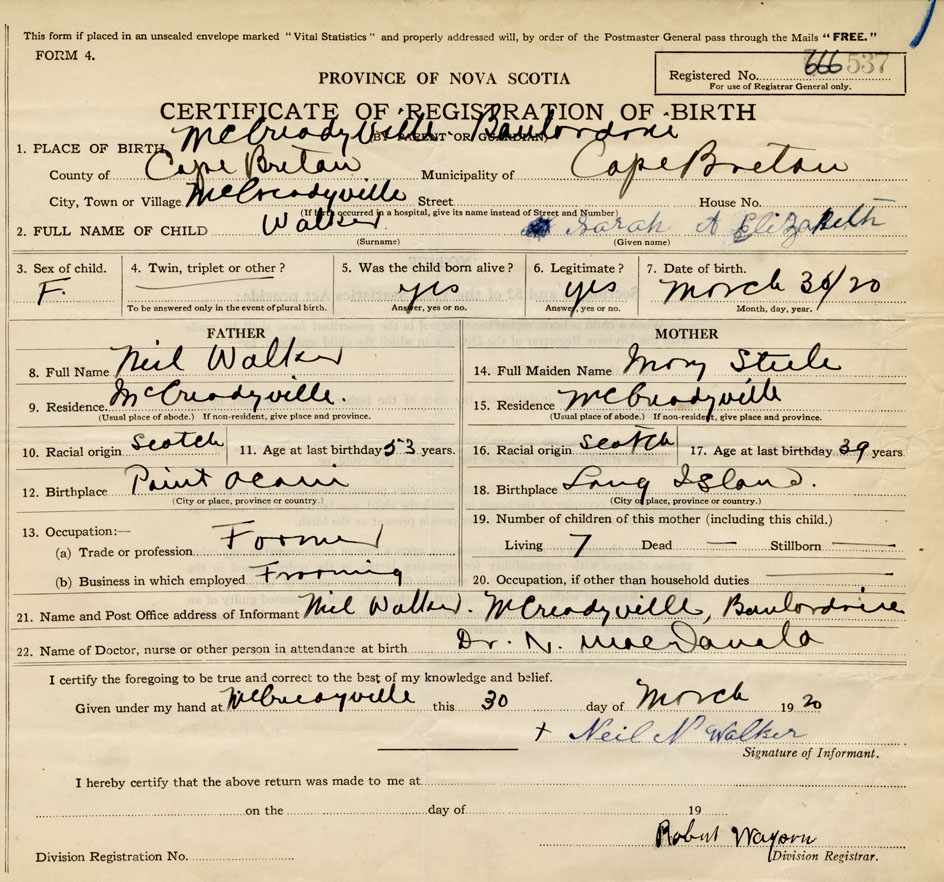 This form if placed in an unsealed envelope marked "Vital Statistics" and properly addressed will, by order of the Postmaster General pass through the Mails "FREE."
FORM 4.
PROVINCE OF NOVA SCOTIA
Registered No. 666 537
For use of Registrar General only.
CERTIFICATE OF REGISTRATION OF BIRTH
(BY PARENT OR GUARDIAN)
1. PLACE OF BIRTH McCreadyville Boulardrie
County of Cape Breton Municipality of Cape Breton
City, Town or Village McCreadyville Street House No.
(If birth occurred in a hospital, give its name instead of Street and Number)
2. FULL NAME OF CHILD Walker Sarah A Elizabeth
(Surname) (Given name)
3. Sex of child. 4. Twin, triplet or other? 5. Was the child born alive? 6. Legitimate? 7. Date of birth.
F. yes yes March 30/20
To be answered only in the event of plural birth. Answer, yes or no. Answer, yes or no. Month, day, year.
FATHER
8. Full Name Neil Walker
9. Residence. McCreadyville.
(Usual place of abode.) If non-resident, give place and province.
10. Racial origin Scotch 11. Age at last birthday 53 years.
12. Birthplace Point Aconi
(City or place, province or country.)
13. Occupation:—
(a) Trade or profession Farmer
(b) Business in which employed Farming
MOTHER
14. Full Maiden Name Mary Steele
15. Residence McCreadyville
(Usual place of abode.) If non-resident, give place and province.
16. Racial origin Scotch 17. Age at last birthday 39 years
18. Birthplace Long Island.
(City or place, province or country.)
19. Number of children of this mother (including this child.)
Living 7 Dead — Stillborn —
20. Occupation, if other than household duties
21. Name and Post Office address of Informant Neil Walker. McCreadyville, Boulardrie
22. Name of Doctor, nurse or other person in attendance at birth Dr. N. MacDonald
I certify the foregoing to be true and correct to the best of my knowledge and belief.
Given under my hand at McCreadyville this 30 day of March 1920
+ Neil N Walker
Signature of Informant.
I hereby certify that the above return was made to me at
on the day of 19
Robert
Division Registration No. Division Registrar.